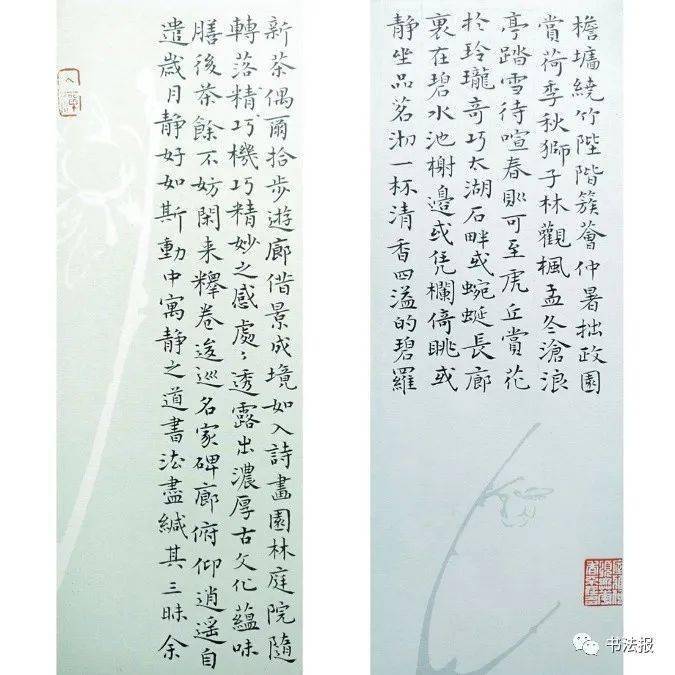 檐墻繞竹陛階簇薈仲暑拙政園
賞荷季秋獅子林觀楓孟冬滄浪
亭踏雪待喧春則可至虎丘賞花
於玲瓏奇巧太湖石畔或蜿蜒長廊
裏在碧水池榭邊或凭欄倚眺或
靜坐品茗沏一杯清香四溢的碧羅
新茶偶爾拾步遊廊借景成境如入詩畫園林庭院隨
轉落精巧機巧精妙之感處〻透露出濃厚古文化蘊味
膳後茶餘不妨閑来釋卷逡巡名家碑廊俯仰逍遥自
遣歲月靜好如斯動中寓靜之道書法盡緘其三昧余
书法报